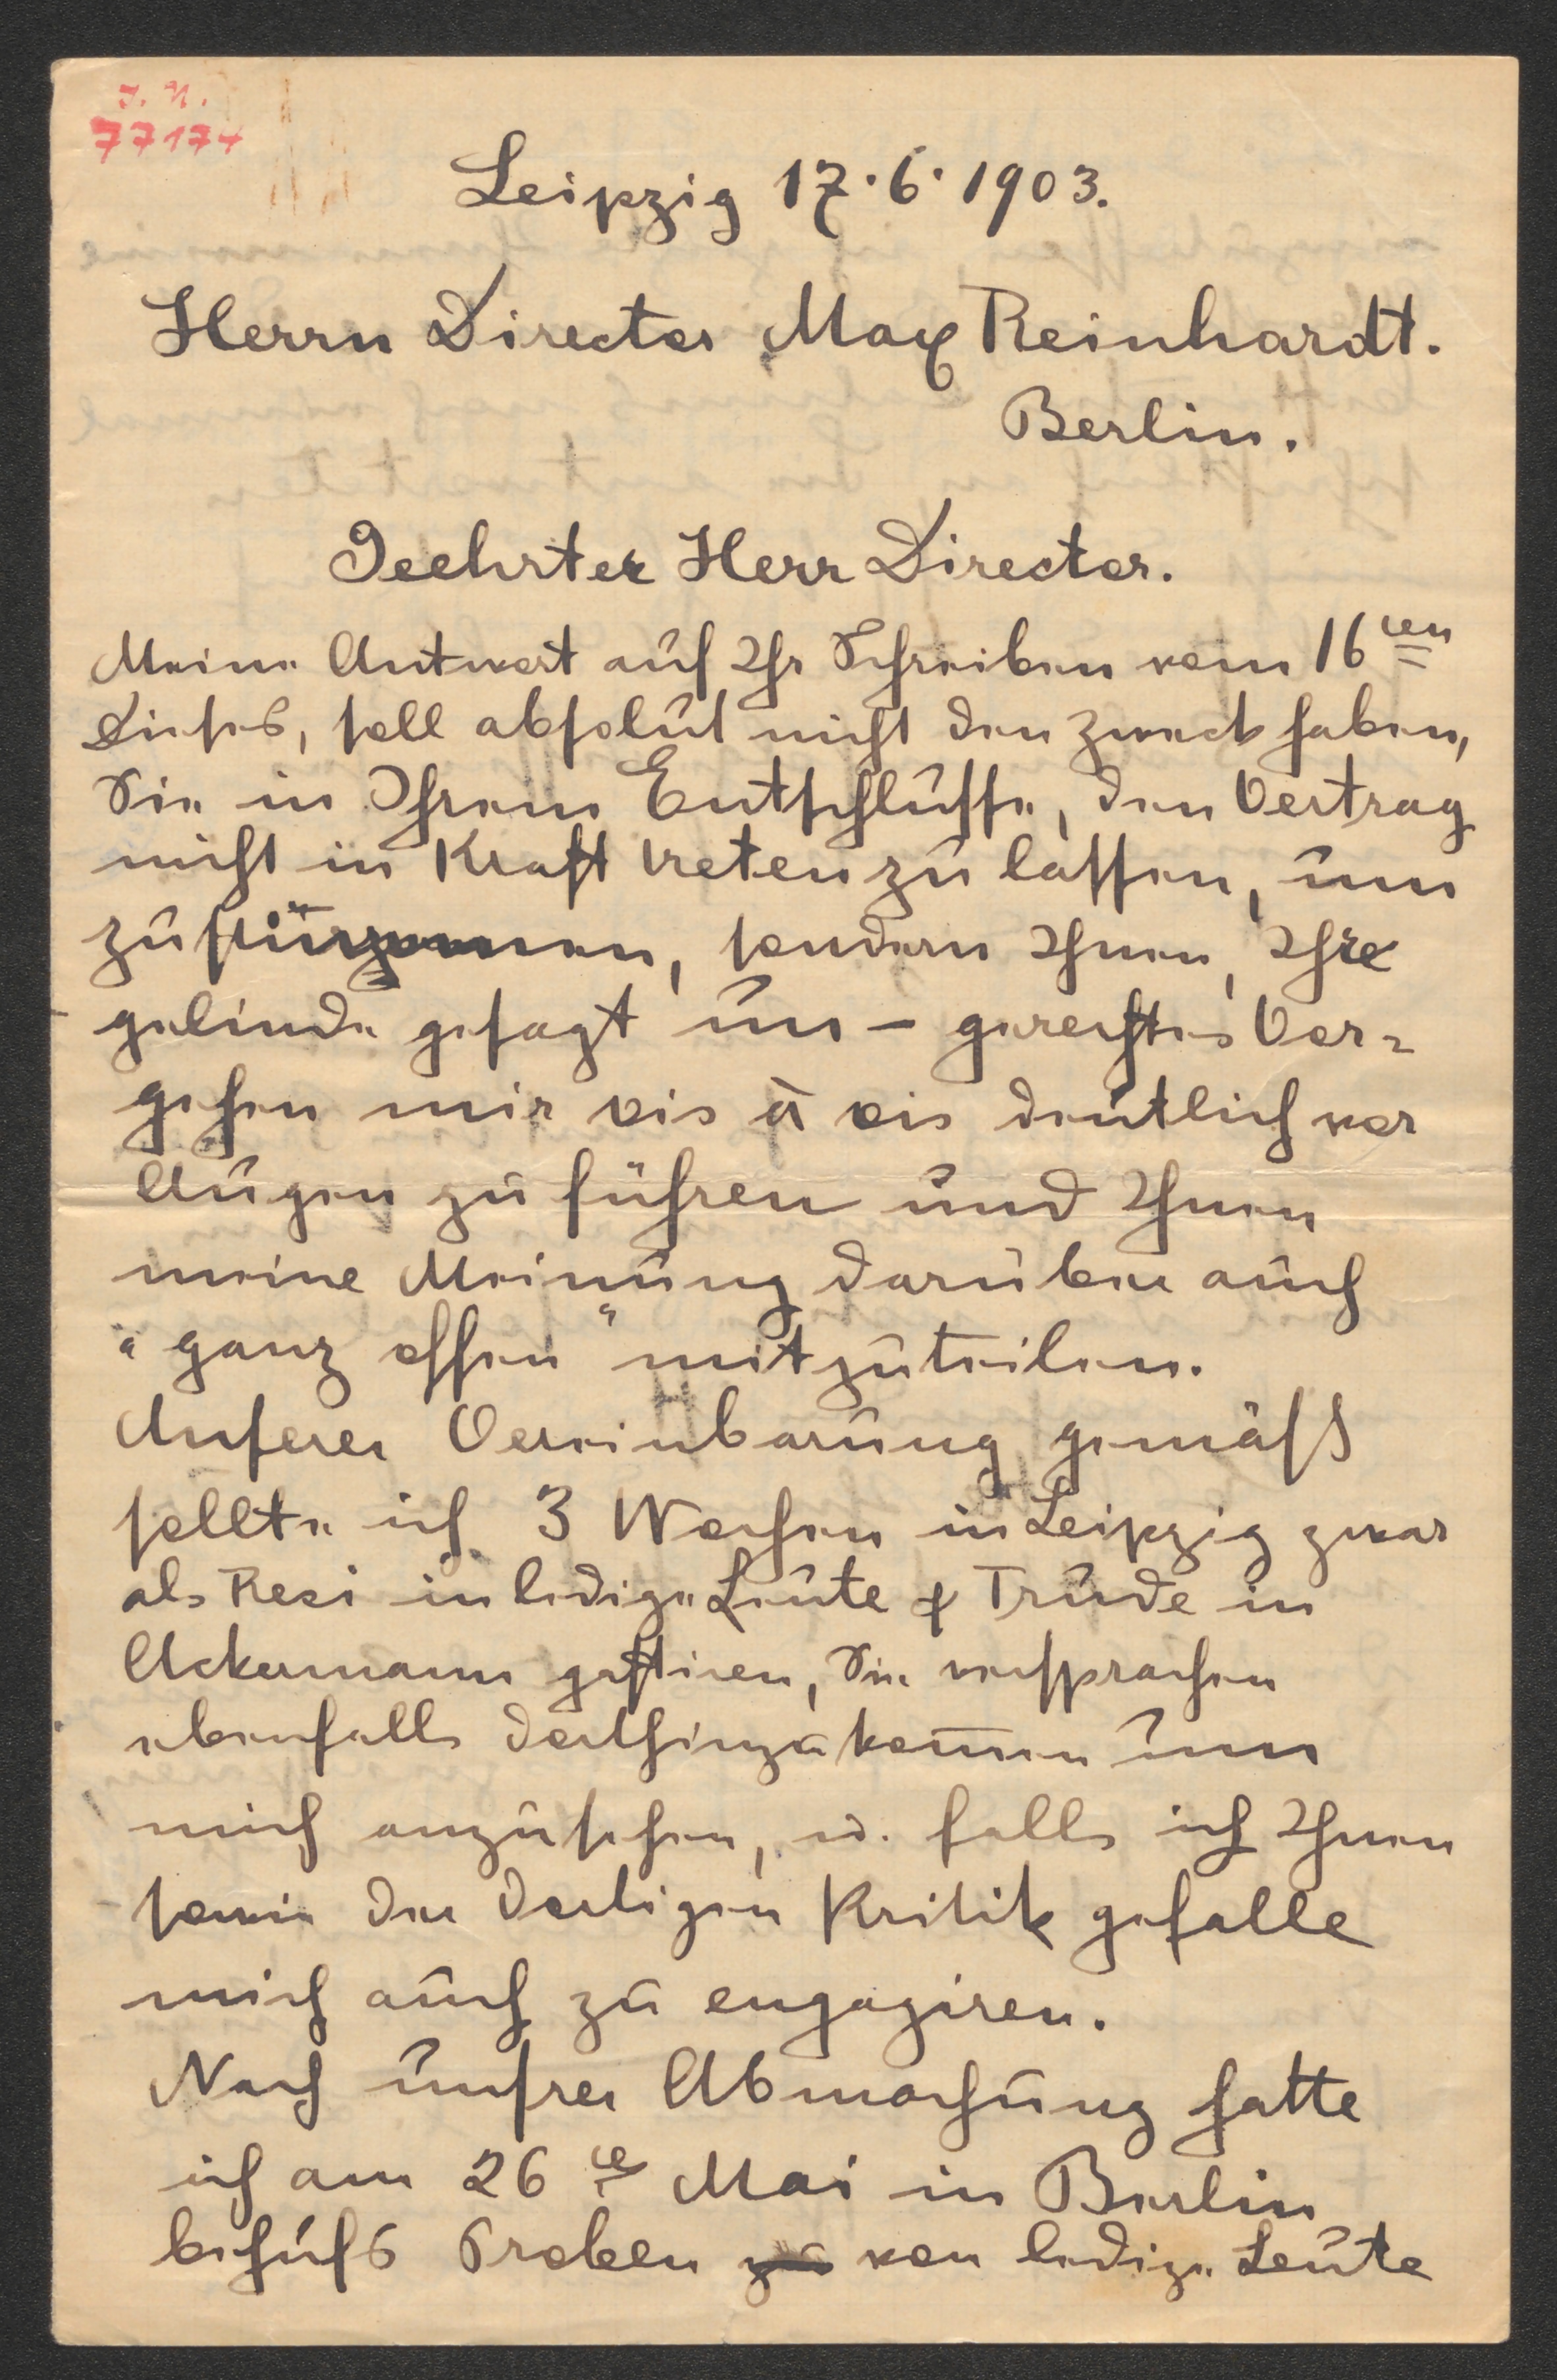 J. N.
77174
Leipzig 17. 6. 1903.
Herrn Director Max Reinhardt.
Berlin.
Geehrter Herr Director.
Meine Antwort auf Ihr Schreiben vom 16ten
Dieses, soll absolut nicht den Zweck haben,
Sie in Ihrem Entschlusse, den Vertrag
nicht in Kraft treten zu lassen, um
zustimmen, sondern Ihnen, Ihre
gelinde gesagt un – gerechtes Vor-
gehen mir vis à vis deutlich vor
Augen zu führen und Ihnen
meine Meinung darüber auch
"ganz offen" mitzuteilen.
Unserer Vereinbarung gemäß
sollte ich 3 Wochen in Leipzig zwar
als Resi in ledige Leute & Trude in
Ackermann gastiren, Sie versprachen
ebenfalls dorthinzukommen um
mich anzusehen, u. falls ich Ihnen
sowie der dortigen Kritik gefalle
mich auch zu engagiren.
Nach unsrer Abmachung hatte
ich am 26te Mai in Berlin
behufs Proben von ledige Leute